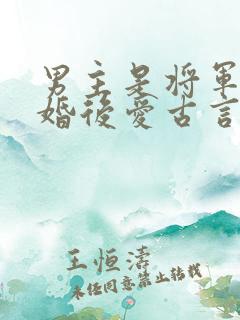 男主是将軍
婚後愛古言
王恒濤
未经同意禁止转载